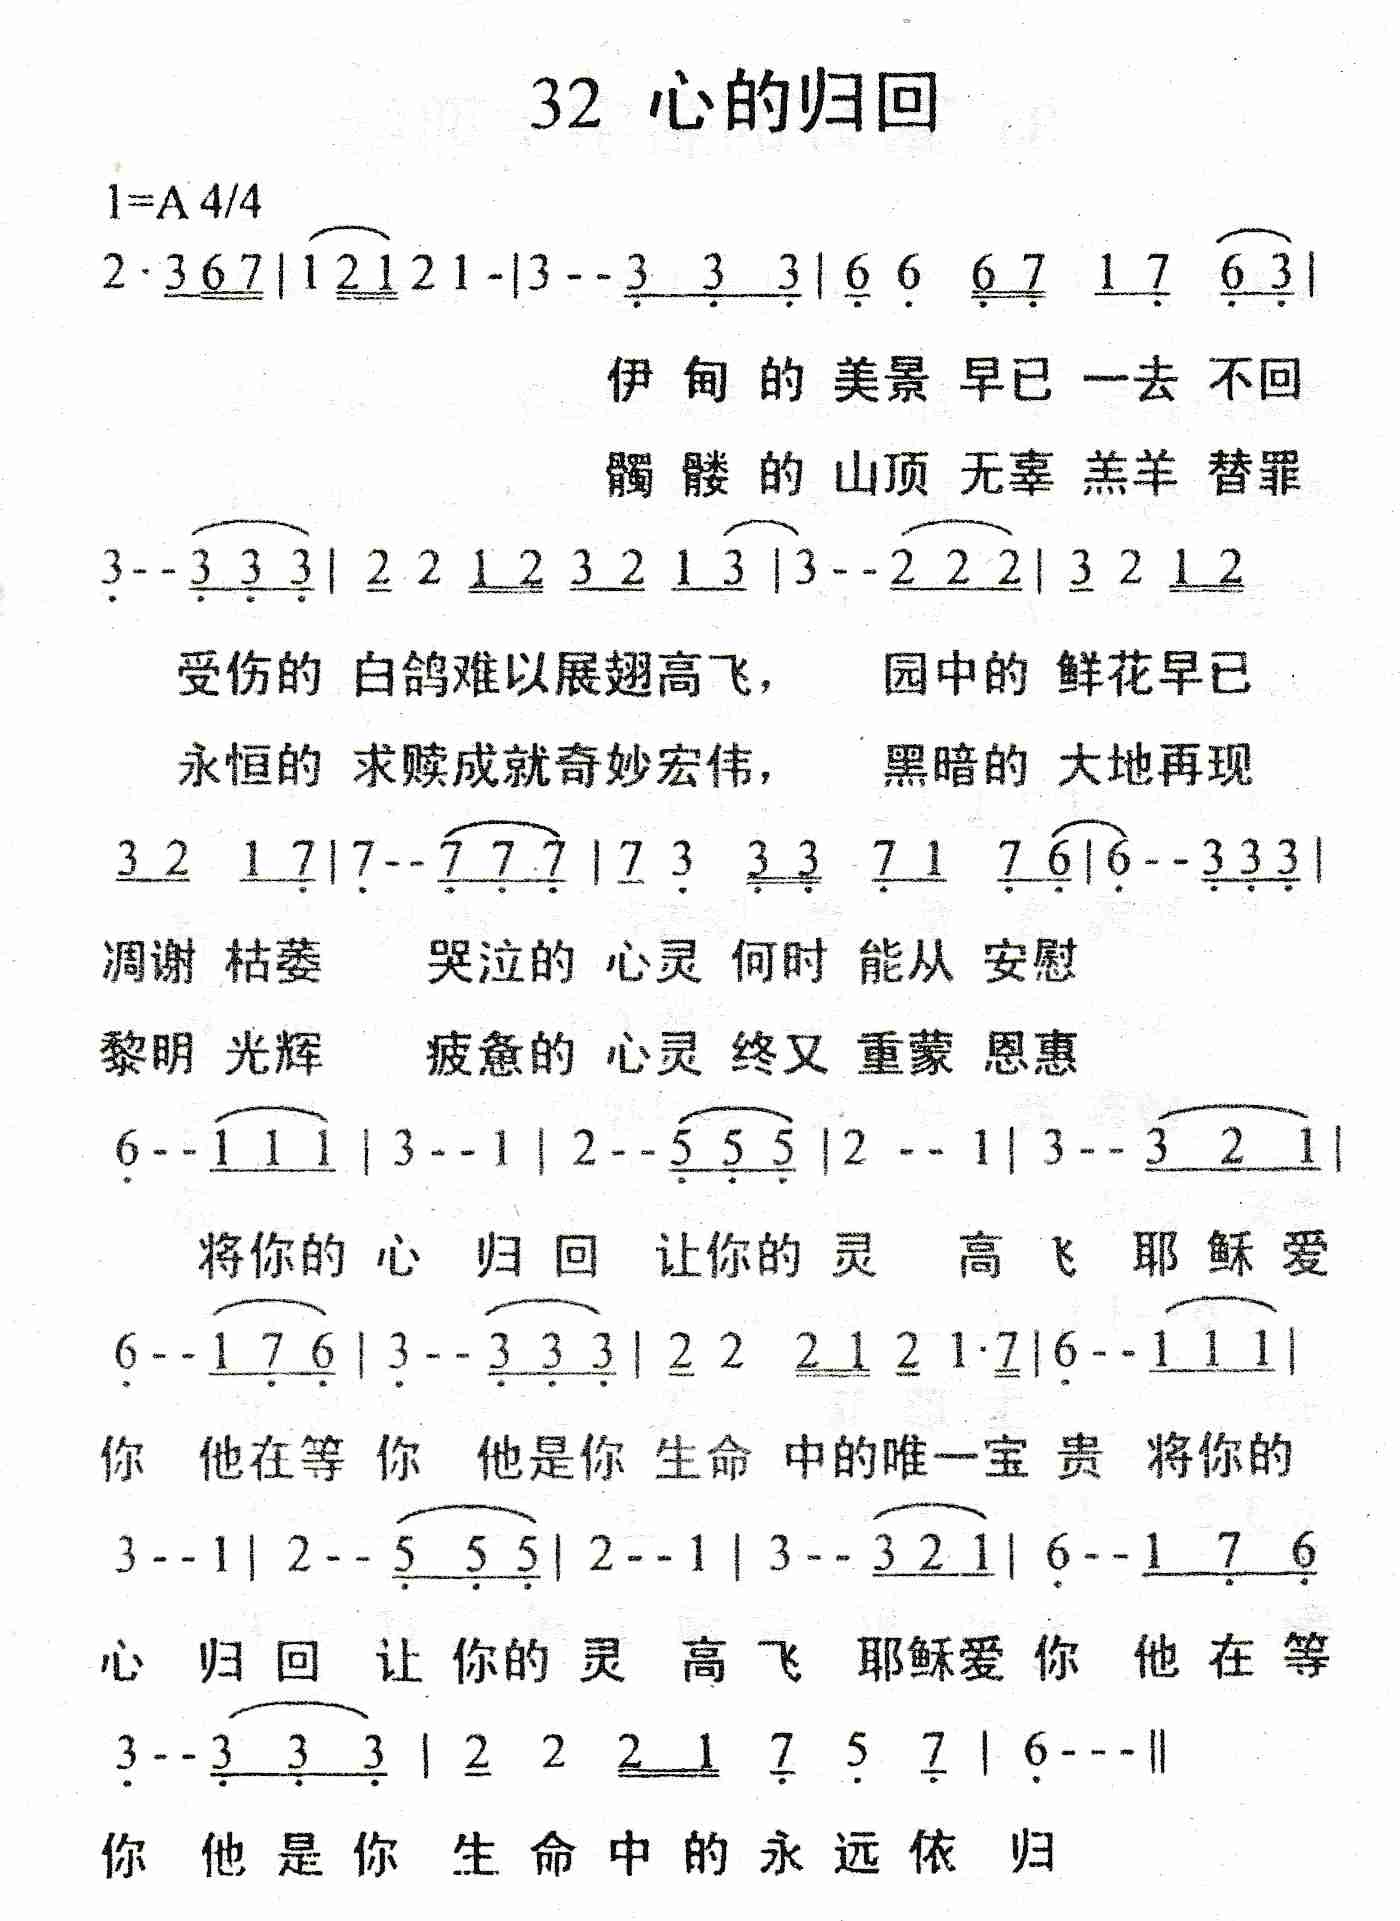 32 心的归回
1=A 4/4
2·3 6 7|1 2 1 2 1 -|3 - - 3 3 3|6 6 6 7 1 7 6 3|
伊甸的美景 早已 一去 不回
髑髅的山顶 无辜 羔羊 替罪
3 - - 3 3 3| 2 2 1 2 3 2 1 3 |3 - - 2 2 2| 3 2 1 2
受伤的 白鸽难以展翅高飞， 园中的 鲜花早已
永恒的 求赎成就奇妙宏伟， 黑暗的 大地再现
3 2 1 7|7 - - 7 7 7 |7 3 3 3 7 1 7 6|6 - - 3 3 3|
凋谢 枯萎 哭泣的 心灵 何时 能从 安慰
黎明 光辉 疲惫的 心灵 终又 重蒙 恩惠
6 - - 1 1 1 | 3 - - 1 | 2 - - 5 5 5 |2 - - 1| 3 - - 3 2 1|
将你的 心 归 回 让你的 灵 高 飞 耶 稣 爱
6 - - 1 7 6 | 3 - - 3 3 3 | 2 2 2 1 2 1·7|6 - - 1 1 1|
你 他在等 你 他是你 生命 中的唯一宝 贵 将你的
3 - - 1| 2 - - 5 5 5| 2 - - 1 | 3 - - 3 2 1| 6 - - 1 7 6
心 归 回 让 你的 灵 高 飞 耶稣爱 你 他 在 等
3 - - 3 3 3 | 2 2 2 1 7 5 7 | 6 - - - ‖
你 他 是 你 生 命 中 的 永 远 依 归